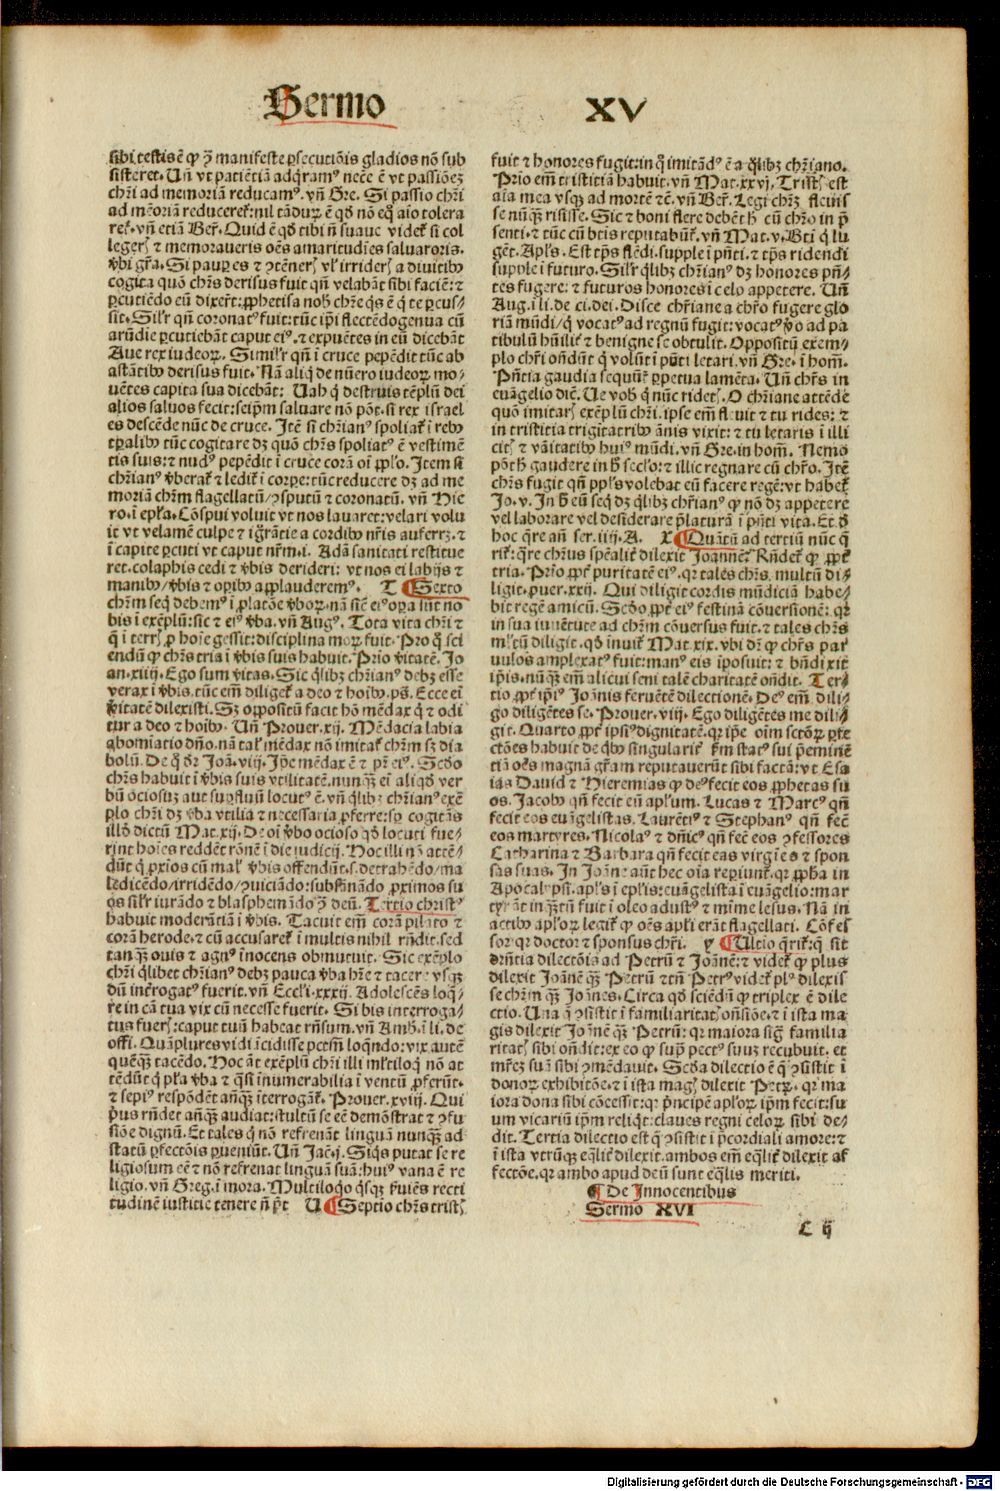 Sermo XV
sibi testis ē ꝙ ꝯ̄ manifeste ꝑsecutiōis gladios nō sub
sisteret. Uñ vt patiētiā adqͥramꝰ necē ē vt passiōeꝫ
chr̄i ad memoriā reducamꝰ. vñ Gre. Si passio chr̄i
ad mēoriā reduceret᷑: nil tā duꝝ ē qd̄ nō eq̄ aīo tolera
ret᷑. vñ etiā Ber̄. Quid ē qd̄ tibi ñ suaue videt᷑ si col
legeris ⁊ memoraueris oēs amaritudīes saluatoris.
v̄bi gr̄a. Si pauꝑ es ⁊ ꝯtēneris vl̓ irrideris a diuitibꝰ
cogita quō chr̄s derisus fuit qñ velabāt sibi faciē: ⁊
ꝑcutiēdo eū dixer̄t: ꝓphetisa nob̓ chr̄e qͥs ē qͥ te ꝑcus/
sit. Sil̓r qñ coronatꝰ fuit: tūc ip̄i flectēdo genua cū
arūdie ꝑcutiebāt caput eiꝰ. ⁊ expuētes in eū dicebāt
Aue rex iudeoꝝ. Simil̓r qñ ī cruce pepēdit tūc ab
astātibꝰ derisus fuit. Nā aliqͥ de nūero iudeoꝝ mo/
uētes capita sua dicebāt: Uah qͥ destruis tēplū dei
alios saluos fecit: seip̄m saluare nō pōt. si rex israel
es descēde nūc de cruce. Itē si chr̄ianꝰ spoliat᷑ ī rebꝰ
tꝑalibꝰ tūc cogitare dꝫ quō chr̄s spoliatꝰ ē vestimē
tis suis: ⁊ nudꝰ pepēdit ī cruce corā oī pplo. Item si
chr̄ianꝰ v̄berat᷑ ⁊ ledit᷑ ī corꝑe: tūc reducere dꝫ ad me
moriā chr̄m flagellatū/ ꝯsputū ⁊ coronatū. vñ Hie
ro. ī ep̄la. Cōspui voluit vt nos lauaret: velari volu
it vt velamē culpe ⁊ igr̄atie a cordibꝰ nr̄is auferret. ⁊
ī capite ꝑcuti vt caput nr̄m. i. Adā sanitati restitue
ret. colaphis cedi ⁊ v̄bis derideri: vt nos ei labijs ⁊
manibꝰ/ v̄bis ⁊ oꝑibꝰ applauderemꝰ. T ¶ Sexto
chr̄m seqͥ debemꝰ ī platōe v̄boꝝ. nā sicē eiꝰ oꝑa sūt no
bis ī exēplū: sic ⁊ eiꝰ v̄ba. vñ Augꝰ. Tota vita chr̄i ⁊
qͣ ī terris ꝑ hoīe gessit: disciplina moꝝ fuit. Pro qͦ sci
endū ꝙ chr̄s tria ī v̄bis suis habuit. Prīo v̄itatē. Jo
an. xiiij. Ego sum v̄itas. Sic qͥlibꝫ chr̄ianꝰ debꝫ esse
verax ī v̄bis. tūc em̄ diliget᷑ a deo ⁊ hoībꝰ. ps̄. Ecce ei
v̄itatē dilexisti. Sꝫ oppositū facit hō mēdax qͥ ⁊ odi
tur a deo ⁊ hoībꝰ. Uñ Prouer. xij. Mēdacia labia
abomiatio dño. nā tal̓ mēdax nō imitat᷑ chr̄m sꝫ dia
bolū. De qͦ dr̄ Joā. viij. Ip̄e mēdax ē ⁊ pr̄ eiꝰ. Scd̄o
chr̄s habuit ī v̄bis suis vtilitatē. nunqͣꝫ eī aliqd̄ ver
bū ociosuꝫ aut suꝑfluū locutꝰ ē. vñ qͥlibꝫ chr̄ianꝰ exē
plo chr̄i dꝫ v̄ba vtilia ⁊ necessaria ꝓferre: sꝑ cogitās
illd̄ dictū Mat. xij. De oī v̄bo ocioso qd̄ locuti fue/
rint hoīes reddēt rōnē ī die iudicij. Hoc illi nō attē/
dūt qͥ ꝓxīos cū mal̓ v̄bis offendūt. s. detrahēdo/ ma
ledicēdo/ irridēdo/ ꝯuiciādo: subsānādo ꝓximos su
os sil̓r iurādo ⁊ blasphemādo ꝯ̄ deū. Tertio christꝰ
habuit moderātiā ī v̄bis. Tacuit em̄ corā pilato ⁊
corā herode. ⁊ cū accusaret᷑ ī multis nihil rñdit. sed
tanqͣꝫ ouis ⁊ agnꝰ īnocens obmutuit. Sic exēplo
chr̄i qͥlibet chr̄ianꝰ debꝫ pauca v̄ba hr̄e ⁊ tacere vsqꝫ
dū īterogatꝰ fuerit. vñ Eccl̓i. xxxij. Adolescēs loqͥ/
re in cā tua vix cū necesse fuerit. Si bis interroga/
tus fueris: caput tuū habeat rñsum. vñ Amb̓. ī li. de
offi. Quāplures vidi īcidisse pctm̄ loqͥndo: vix autē
quēqͣꝫ tacēdo. Hoc āt exēplū chr̄i illi ml̓tiloqͥ nō at
tēdūt qͥ pl̓a v̄ba ⁊ qͣsi īnumerabilia ī ventū ꝓferūt.
⁊ sepiꝰ respōdēt añqͣꝫ īterrogāt᷑. Prouer. xviij. Qui
pͥus rñdet añqͣꝫ audiat: stultū se eē demōstrat ⁊ ꝯfu
siōe dignū. Et tales qͥ nō refrenāt linguā nunqͣꝫ ad
statū ꝑfectōis ꝑueniūt. Uñ Jac̄. j. Siqͥs putat se re
ligiosum eē ⁊ nō refrenat linguā suā: huiꝰ vana ē re
ligio. vñ Greg. ī mora. Multiloqͦ qͥsqͣꝫ ẜuiēs recti
tudinē iusticie tenere ñ pōt U ¶ Septīo chr̄s tristis
fuit ⁊ honores fugit: in qͦ imitādꝰ ē a qͦlibꝫ chr̄iano.
Prīo em̄ tristitiā habuit. vñ Mat. xxvj. Tristis est
aīa mea vsqꝫ ad mortē ⁊c̄. vñ Ber̄. Legi chr̄ꝫ fleuis
se nunqͣꝫ risisse. Sic ⁊ boni flere debēt h̓ cū chr̄o in pͥ
senti. ⁊ tūc cū btīs reputabūt᷑. vñ Mat. v. Bti qͥ lu
gēt. Apl̓s. Est tp̄s flēdi. supple ī pñti. ⁊ tp̄s ridendi
supple ī futuro. Sil̓r qͥlibꝫ chr̄ianꝰ dꝫ honores pñ/
tes fugere: ⁊ futuros honores ī celo appetere. Uñ
Aug. ī li. de ci. dei. Disce chr̄iane a chr̄o fugere glo
riā mūdi/ qͥ vocatꝰ ad regnū fugit: vocatꝰ v̄o ad pa
tibulū hūilit᷑ ⁊ benigne se obtulit. Oppositū exem/
plo chr̄i ondūt qͥ volūt ī pñti letari. vñ Gre. ī hom̄.
Pñtia gaudia sequūt᷑ ꝑpetua lamēta. Uñ chr̄s in
euāgelio dič. Ue vob̓ qͥ nūc ridetis. O chr̄iane attēde
quō imitaris exēplū chr̄i. ip̄e em̄ fleuit ⁊ tu rides: ⁊
in tristitia trigītatribꝰ ānis vixit: ⁊ tu letaris ī illi
citis ⁊ vāitatibꝰ huiꝰ mūdi. vñ Gre. in hom̄. Nemo
pōt h̓ gaudere in h̓ sec̄lo: ⁊ illic regnare cū chr̄o. Itē
chr̄s fugit qñ ppl̓s volebat eū facere regē: vt habet᷑
Jo. v. In h̓ eū seqͥ dꝫ qͥlibꝫ chr̄ianꝰ ꝙ nō dꝫ appetere
vel laborare vel desiderare p̄laturā ī pñti vita. Et d̄
hoc qͥre añ ser. iiij. A. X ¶ Quātū ad tertiū nūc qͥ
rit᷑: qͣre chr̄us spēalit᷑ dilexit Joannē? Rñdet᷑ ꝙ ꝓpt᷑
tria. Prīo ꝓpt᷑ puritatē eiꝰ. qꝛ tales chr̄s multū di/
ligit. puer. xxij. Qui diligit cordis mūdiciā habe/
bit regē amicū. Scd̄o ꝓpt᷑ eiꝰ festinā cōuersionē: qꝛ
in sua iuuētute ad chr̄m cōuersus fuit. ⁊ tales chr̄s
ml̓tū diligit. qd̄ inuit᷑ Mat. xix. vbi dr̄ ꝙ chr̄s par
uulos amplexatꝰ fuit: manꝰ eis īposuit: ⁊ bñdixit
ip̄is. nūqͣꝫ em̄ alicui seni talē charitatē oñdit. Ter/
tio ꝓpt᷑ ip̄iꝰ Joānis feruētē dilectionē. Deꝰ em̄ dili/
go diligētes se. Prouer. viij. Ego diligētes me dili/
git. Quarto ꝓpt᷑ ip̄siꝰ dignitatē. qꝛ ip̄e oīm sctōꝝ ꝑfe
ctōes habuit de qͥbꝰ singularit᷑ ẜm statꝰ sui p̄eminē
tiā oēs magnā gr̄am reputauerūt sibi factā: vt Esa
ias Dauid ⁊ Hieremias qͦ deꝰ fecit eos ꝓphetas su
os. Jacobꝰ qñ fecit eū apl̓um. Lucas ⁊ Marcꝰ qñ
fecit eos euāgelistas. Laurētiꝰ ⁊ Stephanꝰ qñ fecē
eos martyres. Nicolaꝰ ⁊ dñicꝰ qñ fecē eos ꝯfessores
Catharina ⁊ Barbara qñ fecit eas virgīes ⁊ spon
sas suas. In Joāne aūt hec oīa reꝑiunt᷑. qꝛ ꝓpha in
Apocalypsi. apl̓s ī epl̓is: euāgelista ī euāgelio: mar
tyr āt in qͣꝫtū fuit ī oleo adustꝰ ⁊ mīme lesus. Nā in
actibꝰ apl̓oꝝ legit᷑ ꝙ oēs apl̓i erāt flagellati. Cōfes
sor qꝛ doctor ⁊ sponsus chr̄i. y ¶ Ultīo qͥrit᷑: qͥ sit
drñtia dilectōis ad Petrū ⁊ Joānē: ⁊ videt᷑ ꝙ plus
dilexit Joānē qͣꝫ Petrū ⁊ tñ Petrꝰ videt᷑ plꝰ dilexis
se chr̄m qͣꝫ Joānes. Circa qd̄ sciēdū ꝙ triplex ē dile
ctio. Una qͣ ꝯsistit ī familiaritatis oñsiōe. ⁊ ī ista ma
gis dilexit Joānē qͣꝫ Petrū: qꝛ maiora sig̓ familia
ritatis sibi oñdit: ex eo ꝙ supͣ pectꝰ suuꝫ recubuit. et
mr̄eꝫ suā sibi ꝯmēdauit. Scd̄a dilectio ē qͣ ꝯsistit ī
donoꝝ exhibitōe. ⁊ ī ista magis dilexit Petꝝ. qꝛ ma
iora dona sibi cōcessit: qꝛ pͥncipē apl̓oꝝ ip̄m fecit: su
um vicariū ip̄m reliqͥt: claues regni celoꝝ sibi de/
dit. Tertia dilectio est qͣ ꝯsistit ī p̄cordiali amore: ⁊
ī ista vtrūqꝫ eqͣlit᷑ dilexit. ambos em̄ eqͣlit᷑ dilexit af
fectōe. qꝛ ambo apud deū sunt eqͣlis meriti.
¶ De Innocentibus
Sermo XVI
C ij
Digitalisierung gefördert durch die Deutsche Forschungsgemeinschaft - DFG